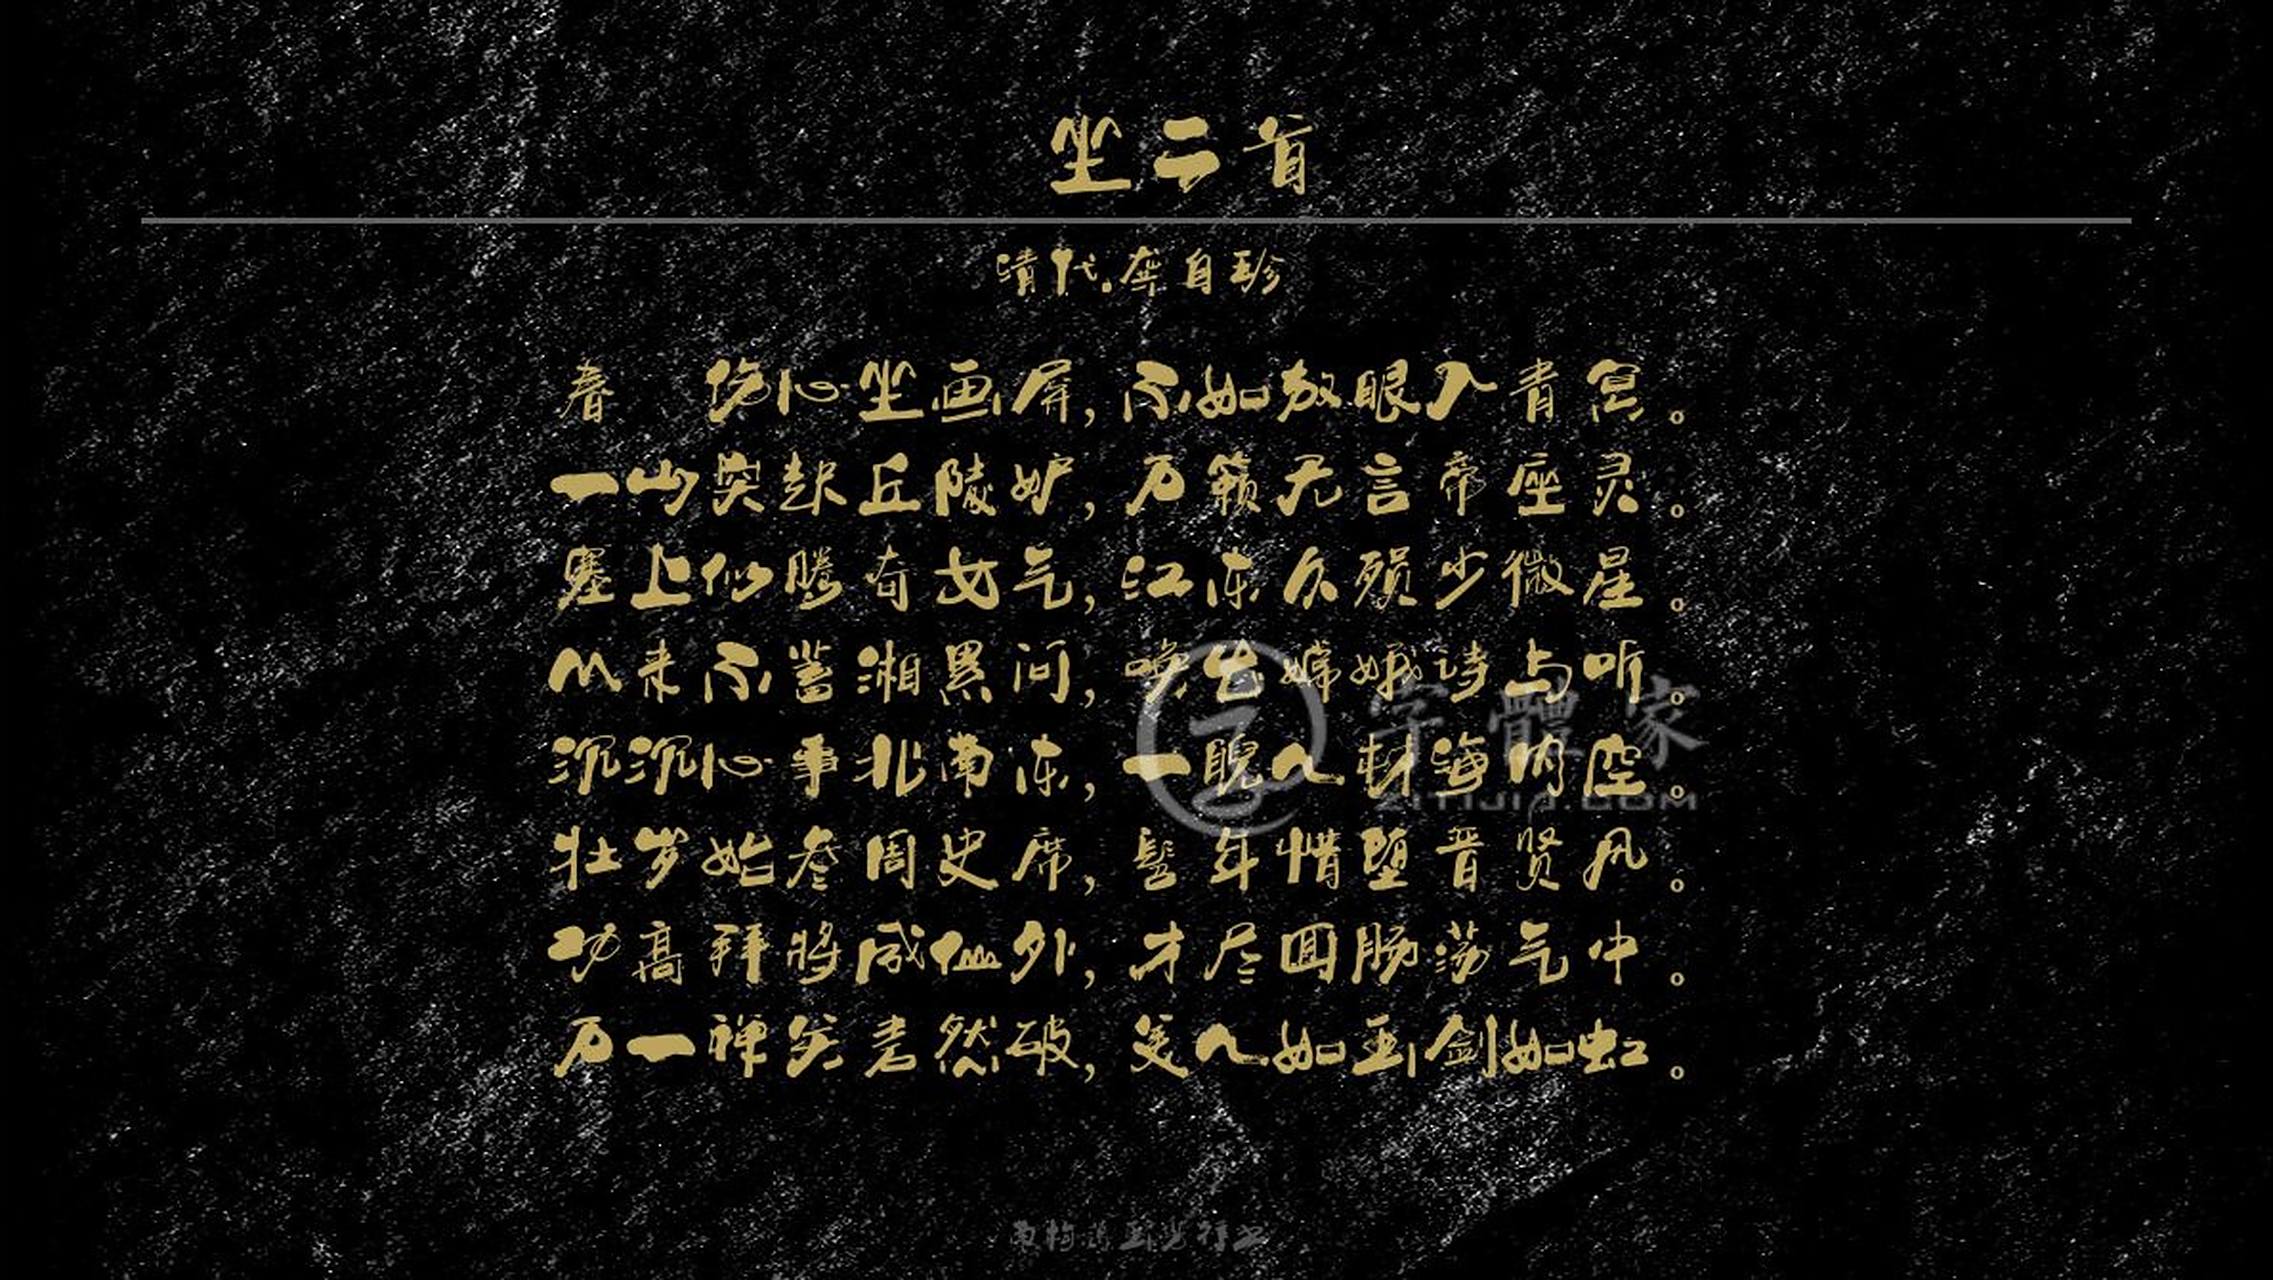 坐二首
清代.龚自珍
春 伤心坐画屏,不如放眼入青冥。
一山突起丘陵妒,万籁无言帝座灵。
塞上似腾奇女气,江东久殒少微星。
从来不蓄湘累问,唤出嫦娥诗与听。
沉沉心事北南东,一睨人材海内空。
壮岁始参周史席,髫年惜堕晋贤风。
功高拜将成仙外,才尽回肠荡气中。
万一禅关砉然破,美人如玉剑如虹。
字體家
ZITIJIA.COM